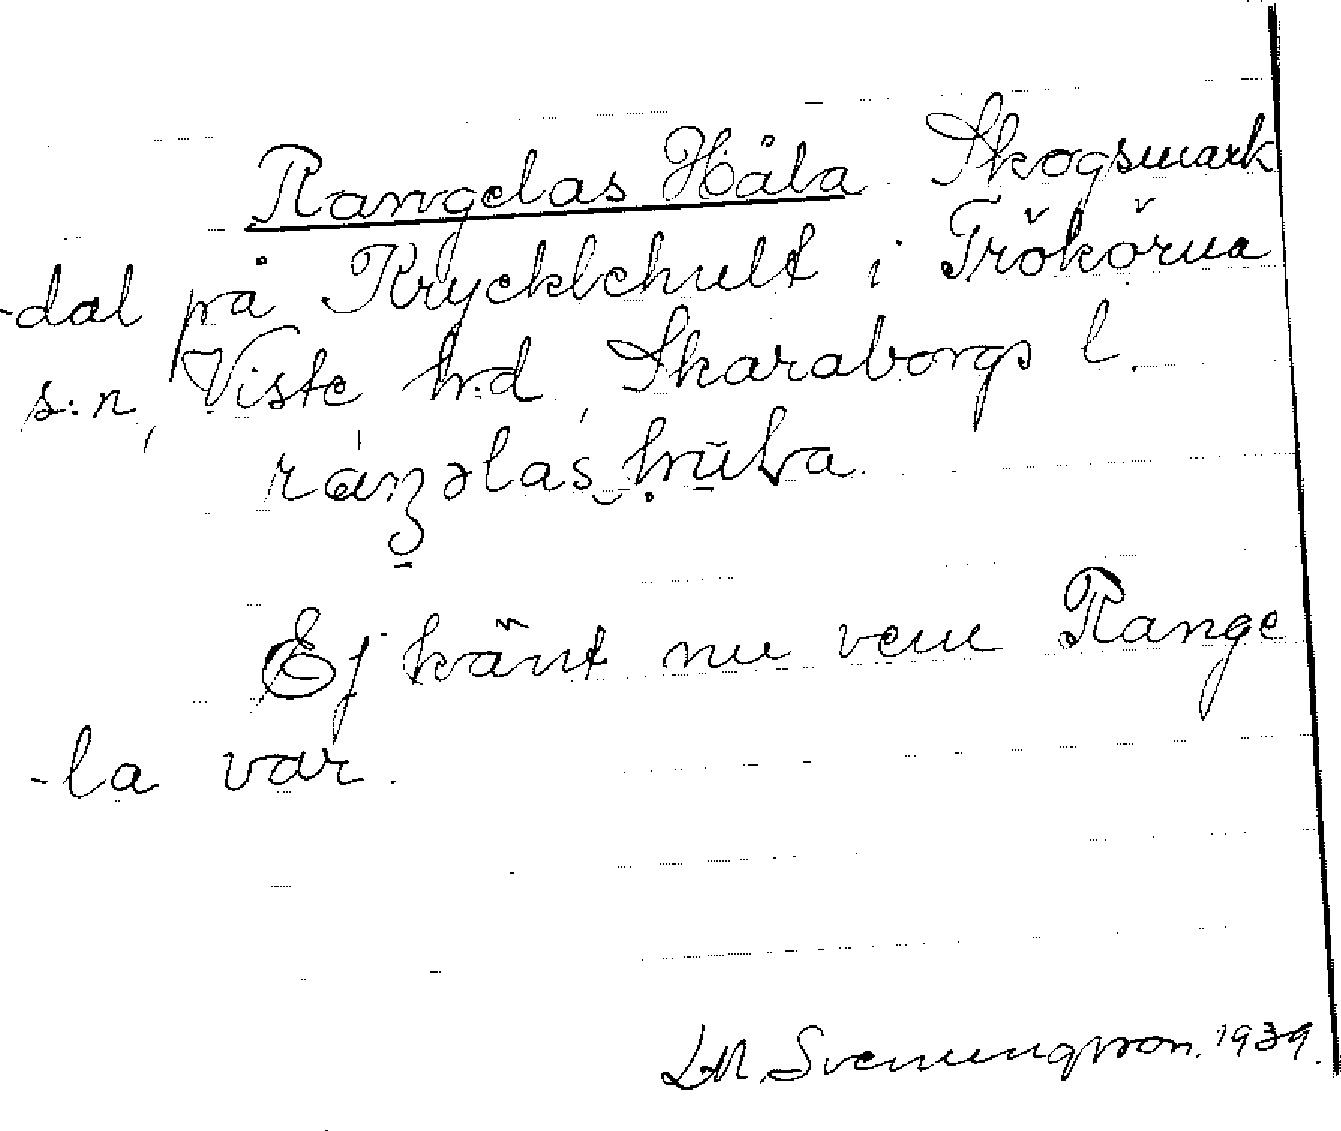 Rangelas Håla Skogsmark
-dal på Krycklehult i Trökörna
s:n, Viste h:d, Skaraborgs l.
Ej känt nu vem Range
-la var.
LM. Svenungsson. 1939.